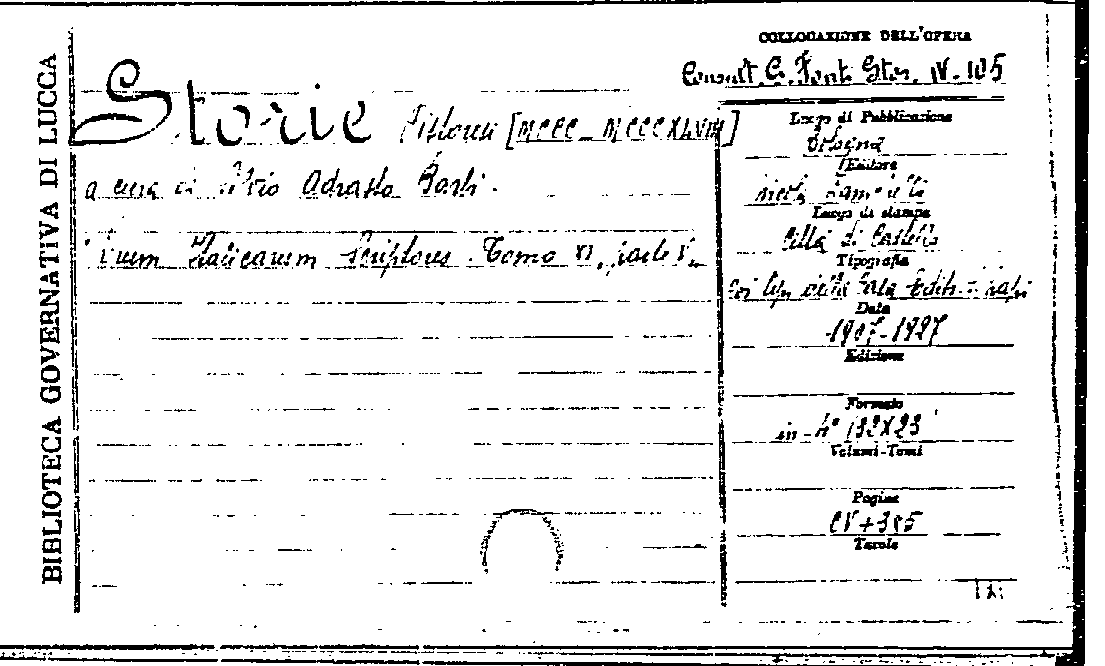 BIBLIOTECA GOVERNATIVA DI LUCCA
COLLOCAZIONE DELL'OPERA
Consult. C. Font. Stor. IV. 105
Storie Pistoresi [MCCC - MCCCXLVIII]
a cura di Silvio Adrasto Barbi.
rum Italicarum Scriptores. Tomo XI, parte V.
Luogo di Pubblicazione
Bologna
Editore
Nicola Zanichelli
Luogo di stampa
Città di Castello
Tipografia
Coi tipi della Casa Edit.
Data
1907-1927
Edizione
Formato
in-4° (32X23
Volumi-Tomi
Pagine
CV+385
Tavole